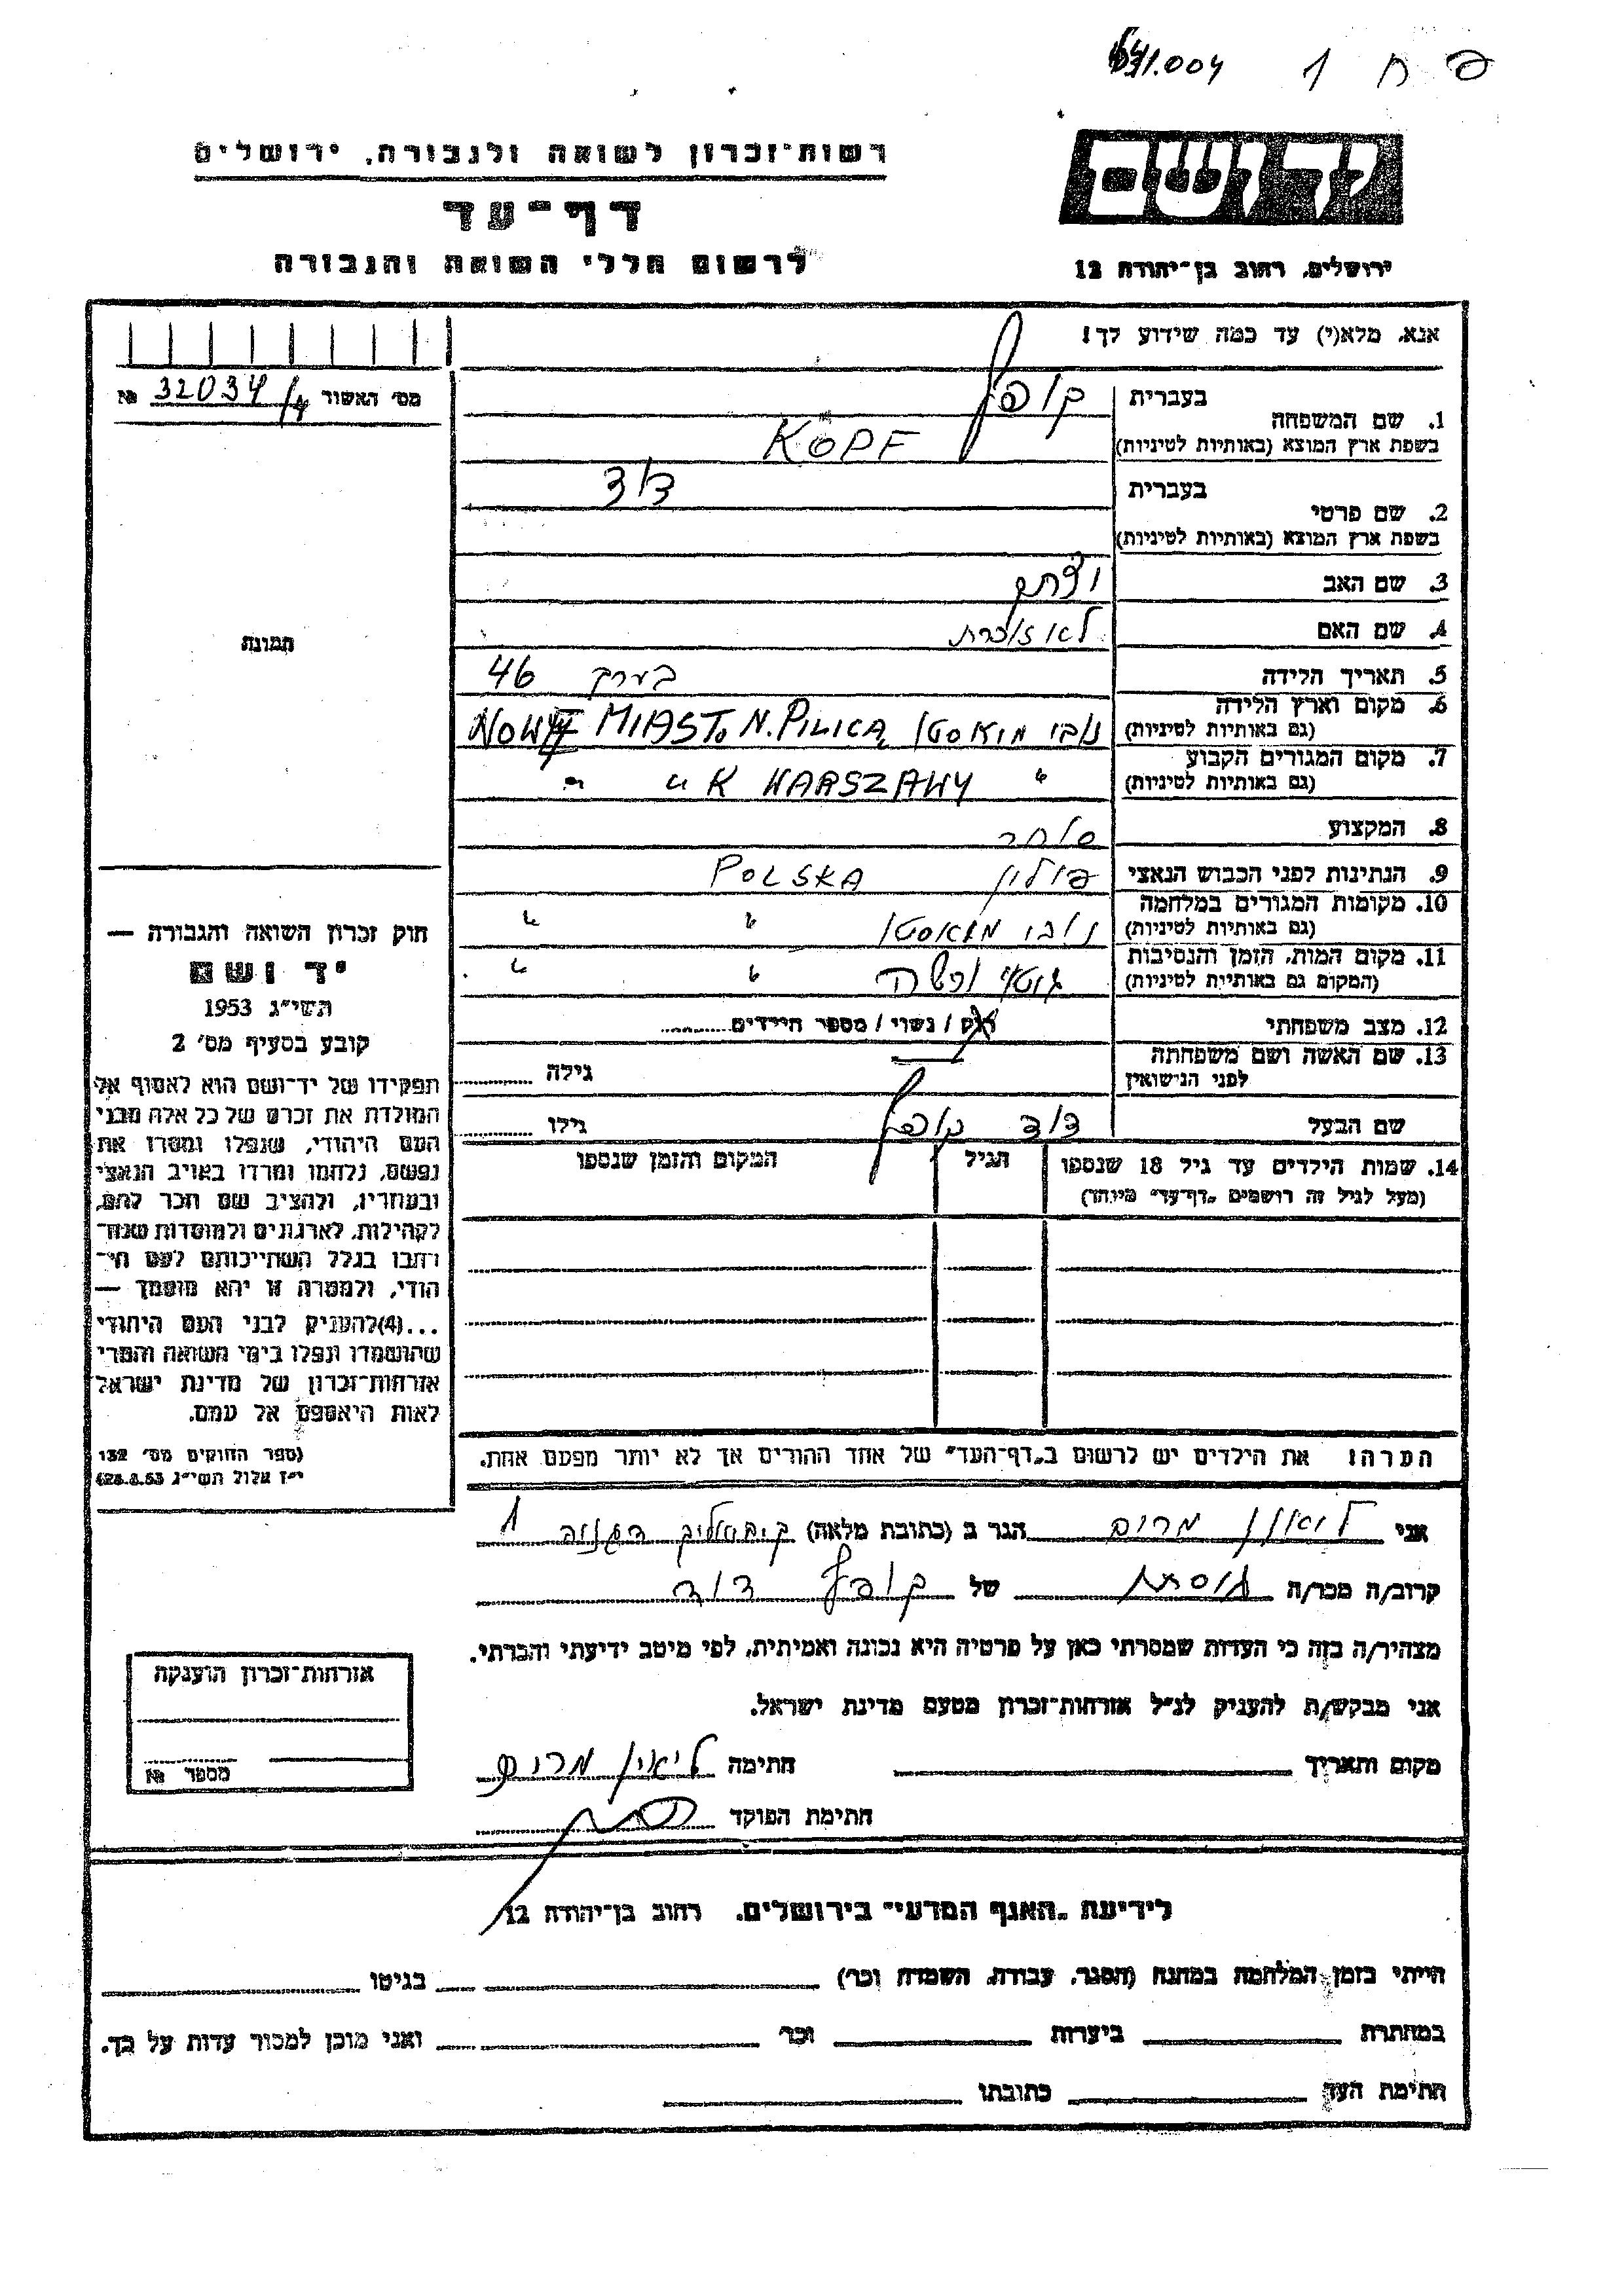 031.004 1 ח פ
רשות־זכרון לשואה ולגבורה, ירושלים
ידושם
דף־עד
לרשום חללי השואה והגבורה
ירושלים, רחוב בן־יהודה 12
אנא, מלא(י) עד כמה שידוע לך!
מס׳ האשור 32034/4 №
1. שם המשפחה
בעברית קופף
בשפת ארץ המוצא (באותיות לטיניות) KOPF
2. שם פרטי
בעברית דוד
בשפת ארץ המוצא (באותיות לטיניות)
3. שם האב
4. שם האם לא זוכרת
5. תאריך הלידה בערך 46
6. מקום וארץ הלידה נובי מיאסטו NOWY MIASTO N. PILICA
(גם באותיות לטיניות)
7. מקום המגורים הקבוע " K WARSZAWY " "
(גם באותיות לטיניות)
8. המקצוע סוחר
9. הנתינות לפני הכבוש הנאצי פולין POLSKA
10. מקומות המגורים במלחמה נובי מיאסטו " "
(גם באותיות לטיניות)
11. מקום המות, הזמן והנסיבות גטו ורשה " "
(המקום גם באותיות לטיניות)
12. מצב משפחתי רוק / נשוי / מספר הילדים
13. שם האשה ושם משפחתה — גילה
לפני הנישואין
שם הבעל דוד קופף גילו
14. שמות הילדים עד גיל 18 שנספו הגיל המקום והזמן שנספו
(מעל לגיל זה רושמים „דף־עד” מיוחד)
הערה: את הילדים יש לרשום ב„דף־העד” של אחד ההורים אך לא יותר מפעם אחת.
תמונה
חוק זכרון השואה והגבורה —
יד ושם
תשי״ג 1953
קובע בסעיף מס׳ 2
תפקידו של יד־ושם הוא לאסוף אל
המולדת את זכרם של כל אלה מבני
העם היהודי, שנפלו ומסרו את
נפשם, נלחמו ומרדו באויב הנאצי
ובעוזריו, ולהציב שם וזכר להם,
לקהילות, לארגונים ולמוסדות שנח־
רבו בגלל השתייכותם לעם הי־
הודי, ולמטרה זו יהא מוסמך —
...(4)להעניק לבני העם היהודי
שהושמדו ונפלו בימי השואה והמרי
אזרחות־זכרון של מדינת ישראל
לאות היאספם אל עמם.
(ספר החוקים מס׳ 132
י״ז אלול תשי״ג 28.8.53)
אני ליאון מרים הגר ב (כתובת מלאה) 1
קרוב/ה מכר/ה גיסתו של קופף דוד
מצהיר/ה בזה כי העדות שמסרתי כאן על פרטיה היא נכונה ואמיתית, לפי מיטב ידיעתי והכרתי.
אני מבקש/ת להעניק לנ״ל אזרחות־זכרון מטעם מדינת ישראל.
מקום ותאריך חתימה ליאון מרים
חתימת הפוקד
אזרחות־זכרון הוענקה
מספר №
לידיעת „האגף המדעי” בירושלים, רחוב בן־יהודה 12
הייתי בזמן המלחמה במחנה (הסגר, עבודה, השמדה וכר׳) בגיטו
במחתרת ביערות וכר׳ ואני מוכן למסור עדות על כך.
חתימת העד כתובתו